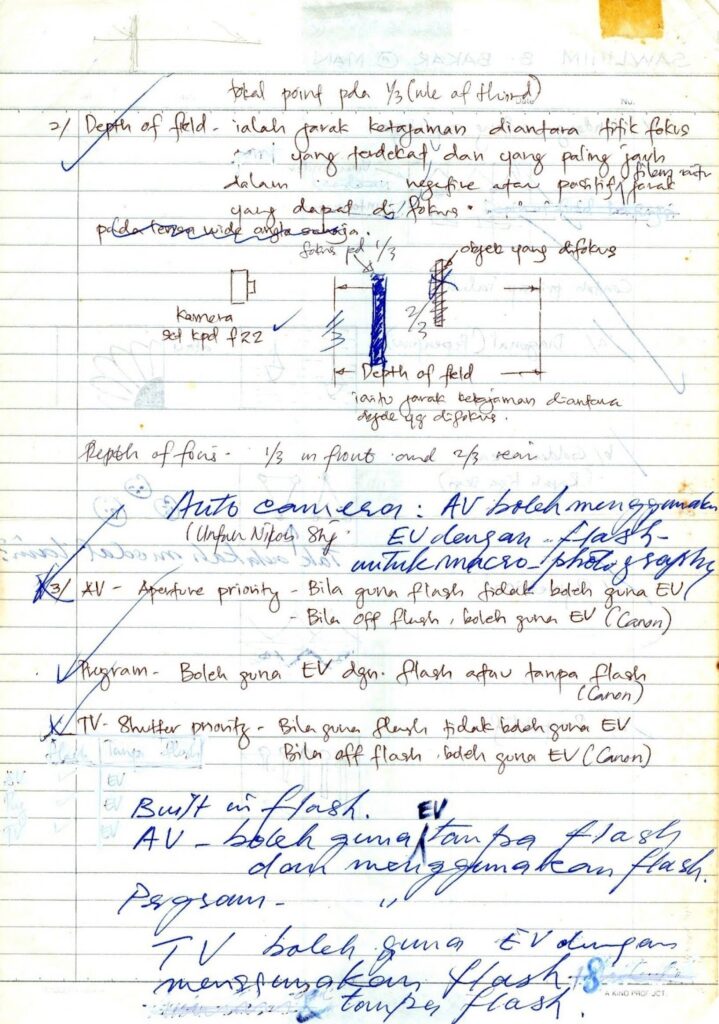 fokal point pda 1/3 (rule of third)
2/ Depth of field - ialah jarak ketajaman diantara titik fokus
yang terdekat dan yang paling jauh
dalam negefire atau positif, filem iaitu jarak
yang dapat di fokus.
pada lensa wide angle sahaja.
fokus pd 1/3
objek yang difokus
Kamera
set kpd f22
1/3
2/3
Depth of field
iaitu jarak ketajaman diantara
objek yg difokus.
Depth of focus - 1/3 in front and 2/3 rear
Auto camera : AV boleh menggunakan
(Untuk Nikon Shj. EV dengan flash
untuk macro-photography
3/ AV - Aperture priority - Bila guna flash tidak boleh guna EV
- Bila off flash, boleh guna EV (Canon)
Program - Boleh guna EV dgn. flash atau tanpa flash
(Canon)
TV - Shutter priority - Bila guna flash tidak boleh guna EV
Bila off flash, boleh guna EV (Canon)
Built in flash.
AV - boleh guna EV tanpa flash
dan menggunakan flash.
Program - "
TV boleh guna EV dengan
menggunakan flash
& tanpa flash.
8
A KINO PRODUCT.